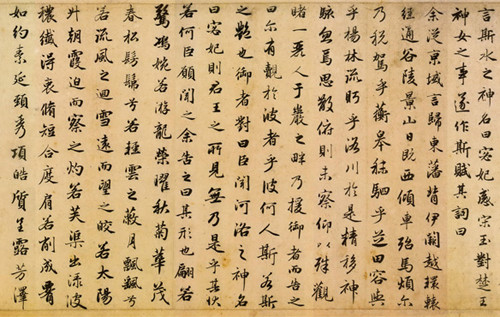 言斯水之神名曰宓妃感宋玉對楚王
神女之事遂作斯賦其詞曰
余從京域言歸東藩背伊闕越轘轅
經通谷陵景山日既西傾車殆馬煩爾
乃稅駕乎蘅皋秣駟乎芝田容與
乎楊林流眄乎洛川於是精移神
駭忽焉思散俯則未察仰以殊觀
睹一麗人于巖之畔乃援御者而告之
曰尒有覿於彼者乎彼何人斯若斯
之豔也御者對曰臣聞河洛之神名
曰宓妃則君王之所見無乃是乎其狀
若何臣願聞之余告之曰其形也翩若
驚鴻婉若游龍榮曜秋菊華茂
春松髣髴兮若輕雲之蔽月飄飄兮
若流風之迴雪遠而望之皎若太陽
升朝霞迫而察之灼若芙蕖出淥波
穠纖得衷脩短合度肩若削成腰
如約素延頸秀項皓質呈露芳澤